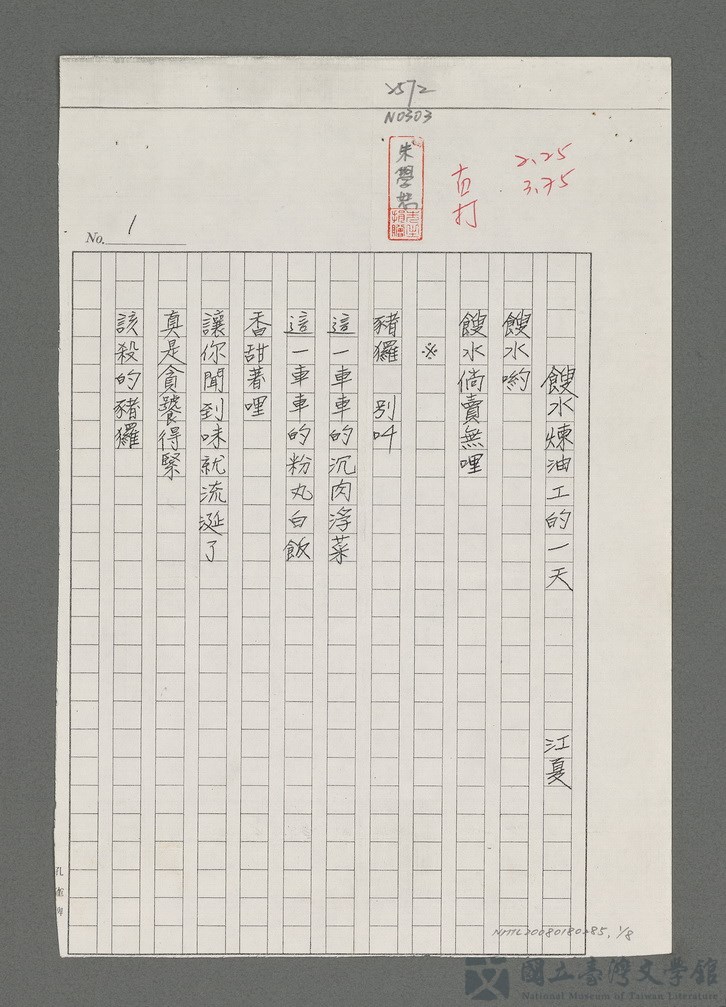 2572
N0303
朱學恕
先生
捐贈
2.25
3.75
打
No. 1
餿水煉油工的一天 江夏
餿水喲
餿水倘賣無哩
※
豬玀 別叫
這一車車的沉肉浮菜
這一車車的粉丸白飯
香甜著哩
讓你聞到味就流涎了
真是貪饕得緊
該殺的豬玀
NMTL20080180285, 1/8
國立臺灣文學館
National Museum of Taiwan Literature